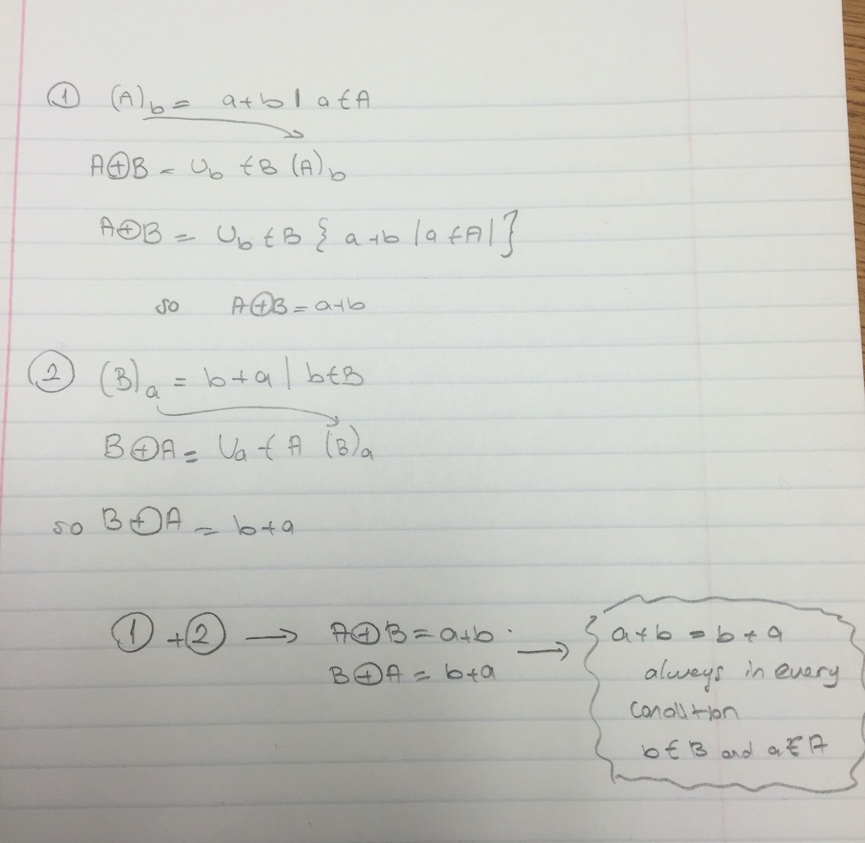 ① (A)b = a+b | a ∈ A
A⊕B = ∪b ∈ B (A)b
A⊕B = ∪b ∈ B { a+b | a ∈ A | }
so A⊕B = a+b
② (B)a = b+a | b∈B
B⊕A = ∪a ∈ A (B)a
so B⊕A = b+a
① + ② → A⊕B = a+b. → a+b = b+a
B⊕A = b+a always in every
condition
b∈B and a∈A